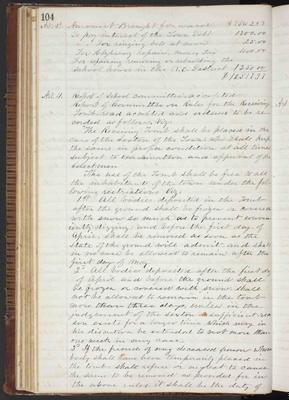 104
Amount Brought for ward
To pay interest of the Town Debt 1200.00
" " For ringing bell at noon 25.00
For Highway repairs, snow &c 400.00
For repairing removing or rebuilding the
school house in the District 1250.00
Report of School committee accepted
Report of Committee on Rules for the Receiving
Tomb read accepted and ordered to be re-
corded as follows, Viz.
The Receiving Tomb shall be placed in the
care of the Sexton of the Town who shall keep
the same in proper condition at all times
subject to the inspection and approval of the
selectmen
The use of the Tomb shall be free to all
the inhabitants of the town under the fol-
lowing restrictions Viz.
1st All bodies deposited in the Tomb
after the ground shall be frozen or covered
with snow so much as to prevent conven-
iently digging, and before the first day of
April shall be removed as soon as the
state of the ground will admit and shall
in no case be allowed to remain after the
first day of May
2d All bodies deposited after the first day
of April and before the ground shall
be frozen or covered with snow shall
not be allowed to remain in the tomb
more than three days unless in the
judgement of the sexton sufficient rea-
son exists for a longer time which may in
his discretion be extended to not more than
one week in any case
3d If the friends of any deceased person whose
body shall have been temporarily placed in
the tomb shall refuse or neglect to cause
the same to be removed as provided for in
the above rules it shall be the duty of